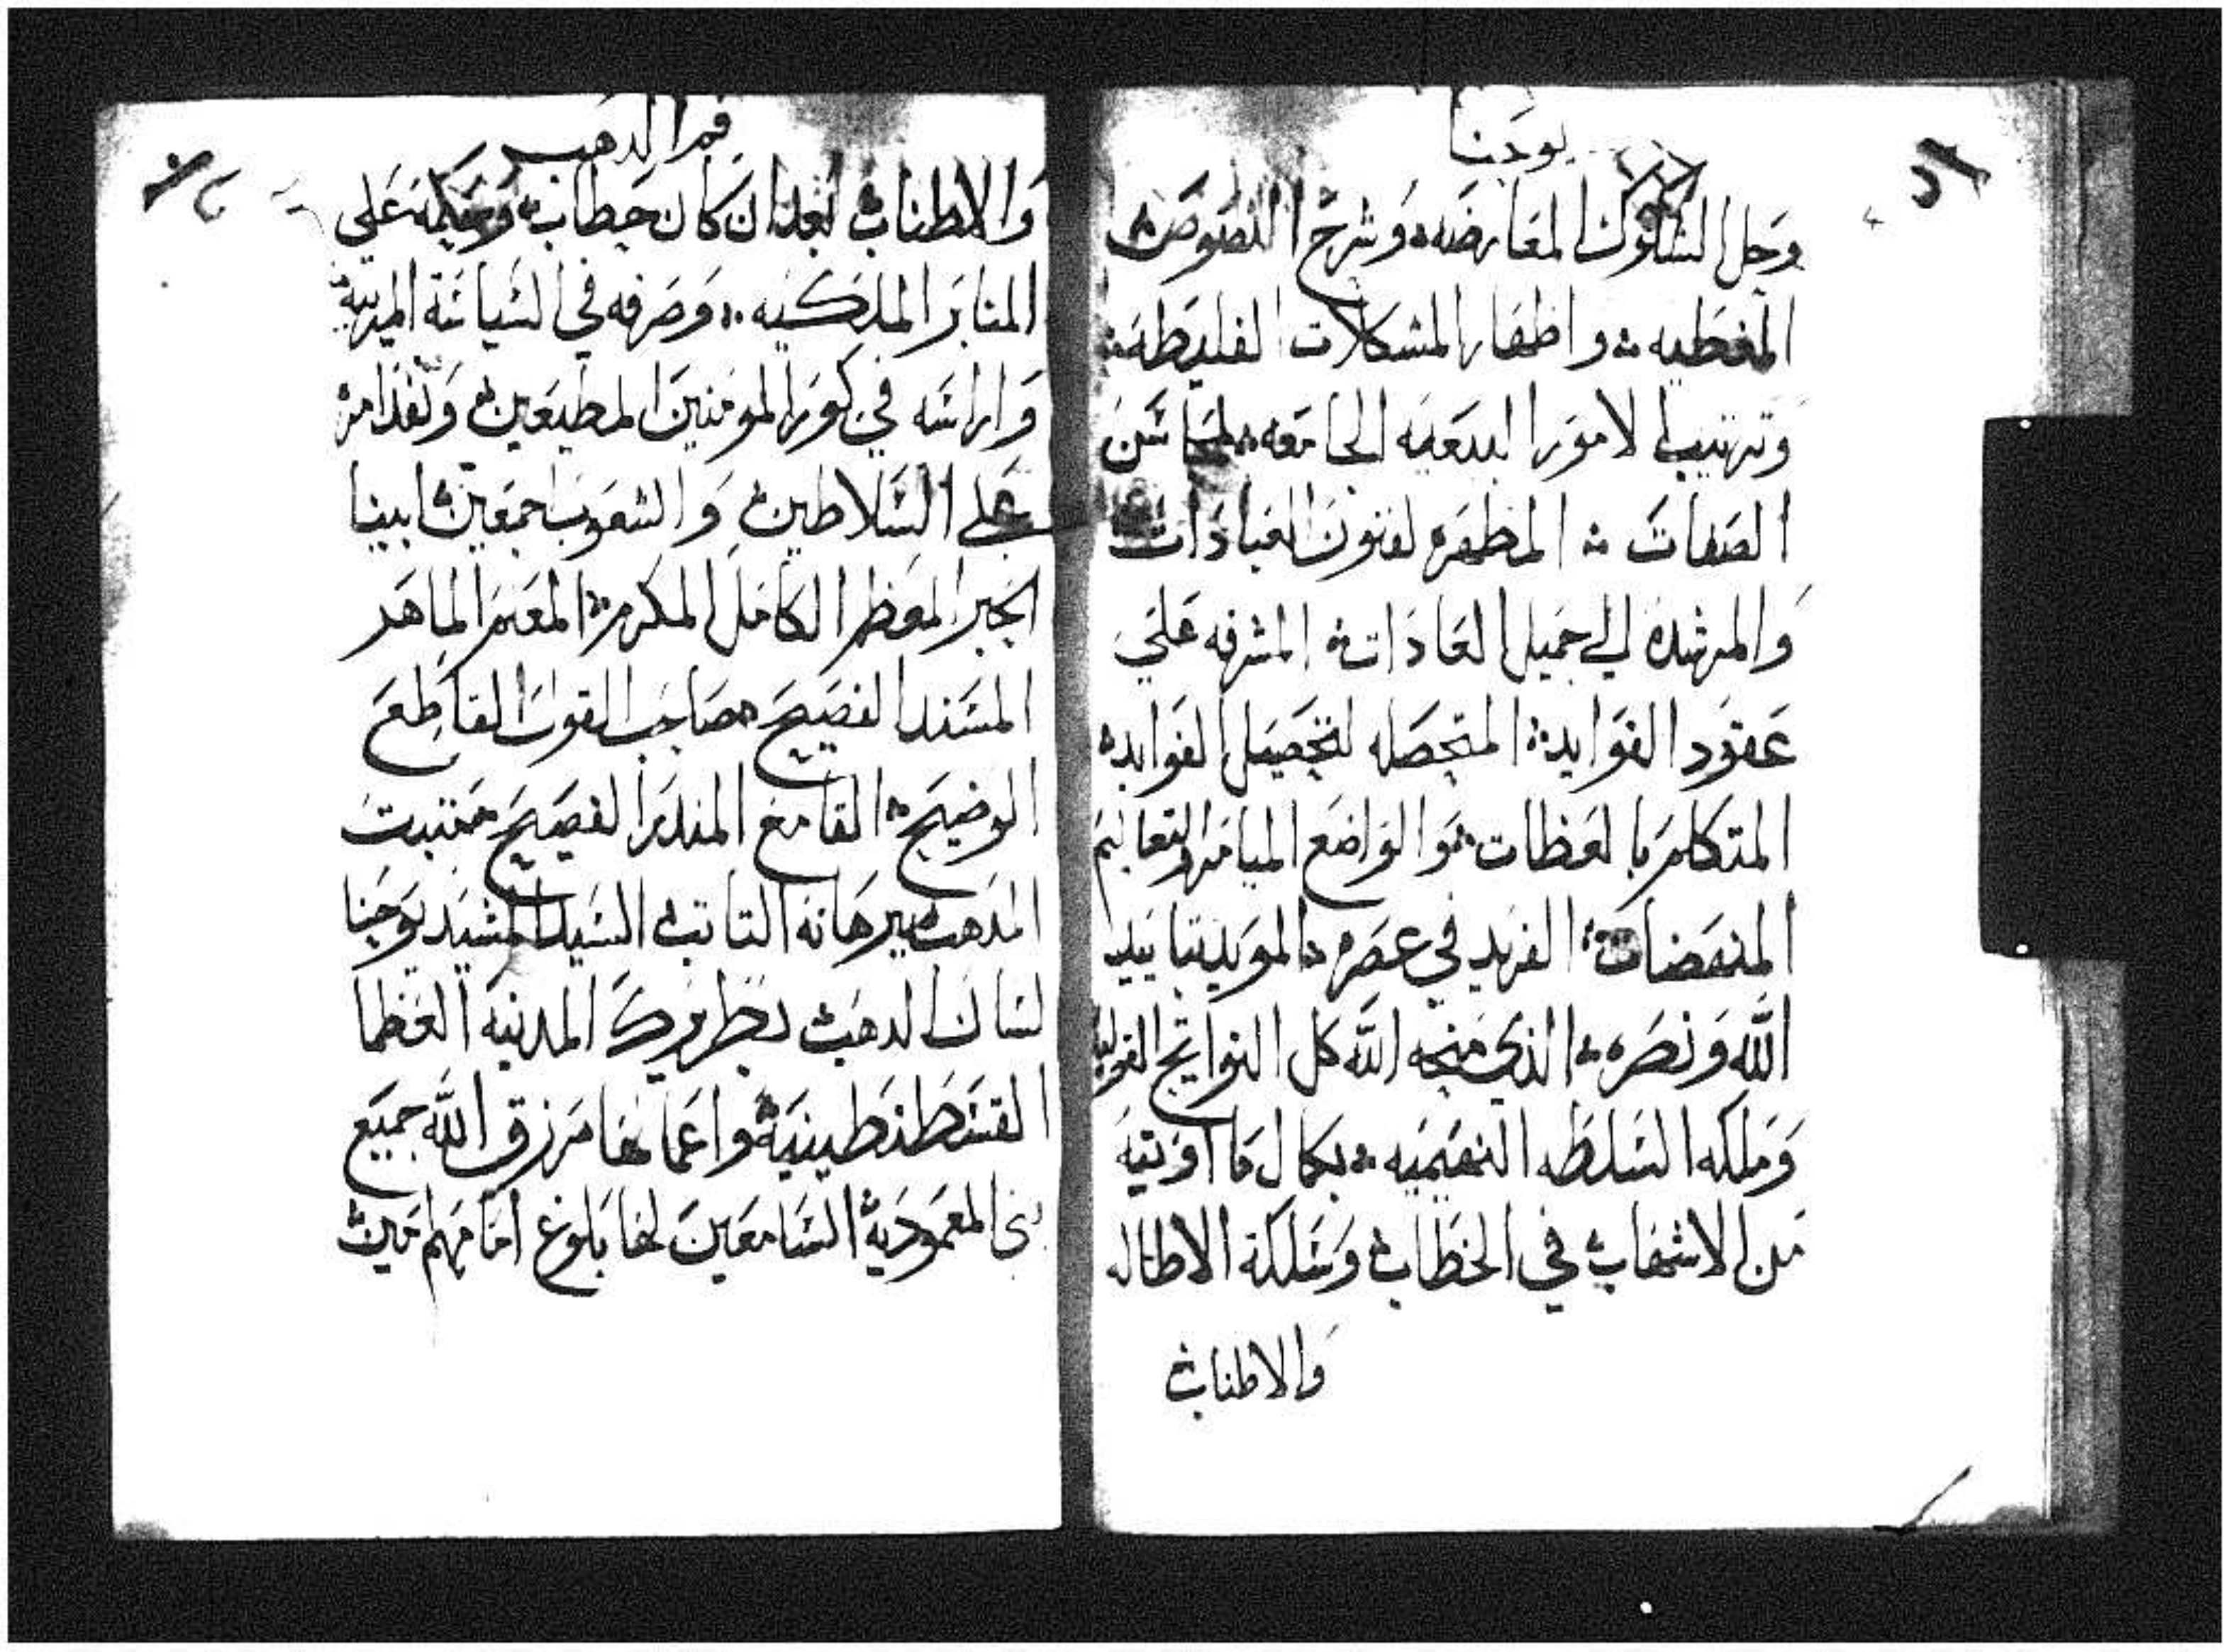 يوحنا
وحل الشكوك المعارضه وشرح النصوص
المغطيه واظهار المشكلات الغليظه
وترتيب الامور البدعيه الجامعه لمحاسن
الصفات المظهره لفنون العبادات
والمرشدة الي جميل العادات المشرفه علي
عقود الفوايد المتحصله لتحصيل الفوايد
المتكلم بالعظات المواضع الميامر والتعاليم
المنهضات الفريد في عصره المويد بتاييد
الله ونصره الذي منحه الله كل النواتج
وملكه السلطه النعيميه بكمال ما اوتيه
من الاشهاب في الخطاب وسلكة الاطاله
والاطناب
فم الدهب
والاطناب بعد ان كان خطاب وحكمه علي
المنابر الملكيه وصرفه في السياسة المدنية
واراسه في كور المومنين المطيعين ونفد امره
علي السلاطين والشعوب اجمعين ابينا
الحبر المعظم الكامل المكرم المعلم الماهر
المسند الفصيح صاحب القول القاطع
الوضيح القامع المندر الفصيح متبت
المدهب ببرهانه التابت السيد المشيد يوحنا
لسان الدهب بطريرك المدنيه العظما
القسطنطينية واعمالها مرزق الله جميع
بني المعمودية السامعين لها بلوغ امامهم امين